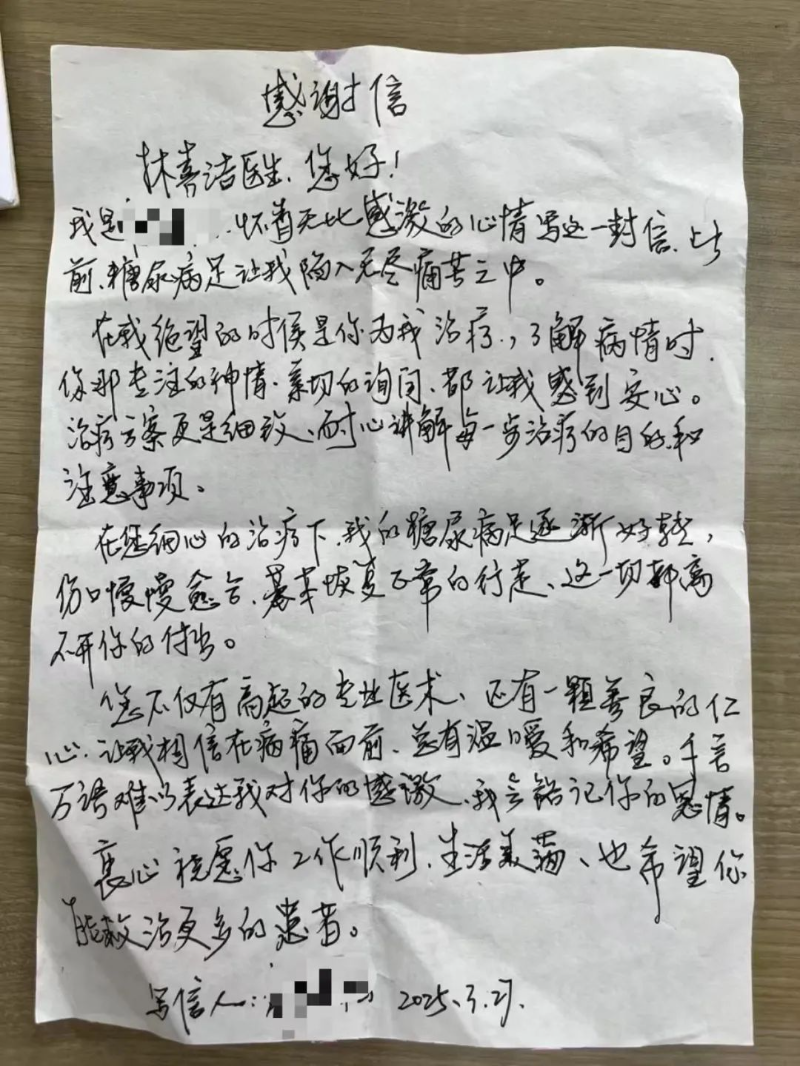 感谢信
林喜洁医生、您好!
我是 怀着无比感激的心情写这一封信、此
前、糖尿病足让我陷入无尽痛苦之中。
在我绝望的时侯是你为我治疗,了解病情时、
你那专注的神情、亲切的询问、都让我感到安心。
治疗方案更是细致、耐心讲解每一步治疗的目的和
注意事项。
在您细心的治疗下、我的糖尿病足逐渐好转,
伤口慢慢愈合、基本恢复正常的行走、这一切都离
不开你的付出。
您不仅有高超的专业医术、还有一颗善良的仁
心、让我相信在病痛面前、总有温暖和希望。千言
万语难以表达我对你的感激、我会铭记你的恩情。
衷心祝愿你工作顺利、生活美满、也希望你
能救治更多的患者。
写信人: 2025.3.27.